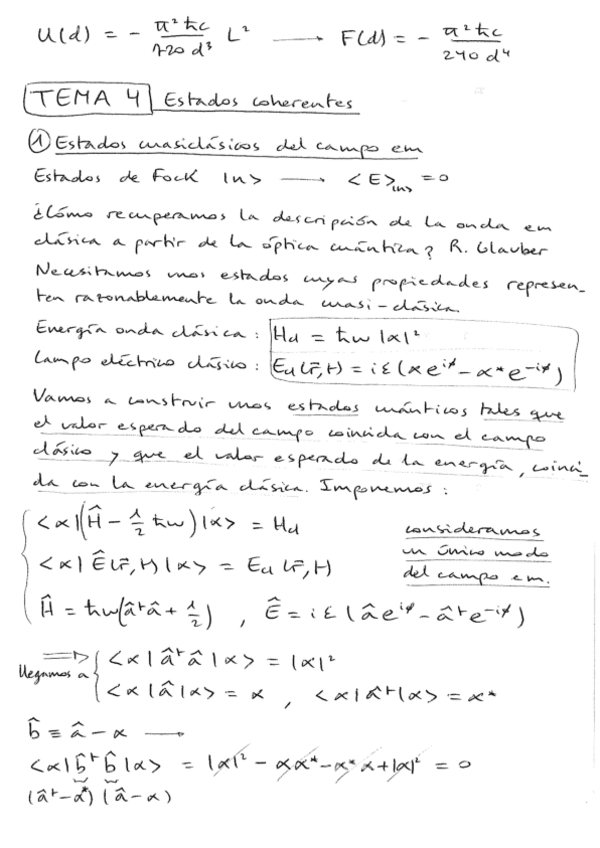 U(d) = - π²ħc / 720 d³ L² ⟶ F(d) = - π²ħc / 240 d⁴
TEMA 4 Estados coherentes
① Estados cuasiclásicos del campo em
Estados de Fock |n> ⟶ <E>|n> = 0
¿Cómo recuperamos la descripción de la onda em
clásica a partir de la óptica cuántica? R. Glauber
Necesitamos unos estados cuyas propiedades represen-
ten razonablemente la onda cuasi-clásica.
Energía onda clásica: Hcl = ħω |α|²
Campo eléctrico clásico: Ecl(r̄,t) = iε(αe^iϕ - α*e^-iϕ)
Vamos a construir unos estados cuánticos tales que
el valor esperado del campo coincida con el campo
clásico y que el valor esperado de la energía, coinci-
da con la energía clásica. Imponemos:
<α|(Ĥ - 1/2 ħω)|α> = Hcl
consideramos
<α| Ê(r̄,t) |α> = Ecl(r̄,t)
un único modo
del campo em.
Ĥ = ħω(â†â + 1/2) , Ê = iε(âe^iϕ - â†e^-iϕ)
⟹ llegamos a
<α| â†â |α> = |α|²
<α| â |α> = α , <α| â† |α> = α*
b̂ ≡ â - α ⟶
<α| b̂†b̂ |α> = |α|² - αα* - α*α + |α|² = 0
(â† - α*) (â - α)